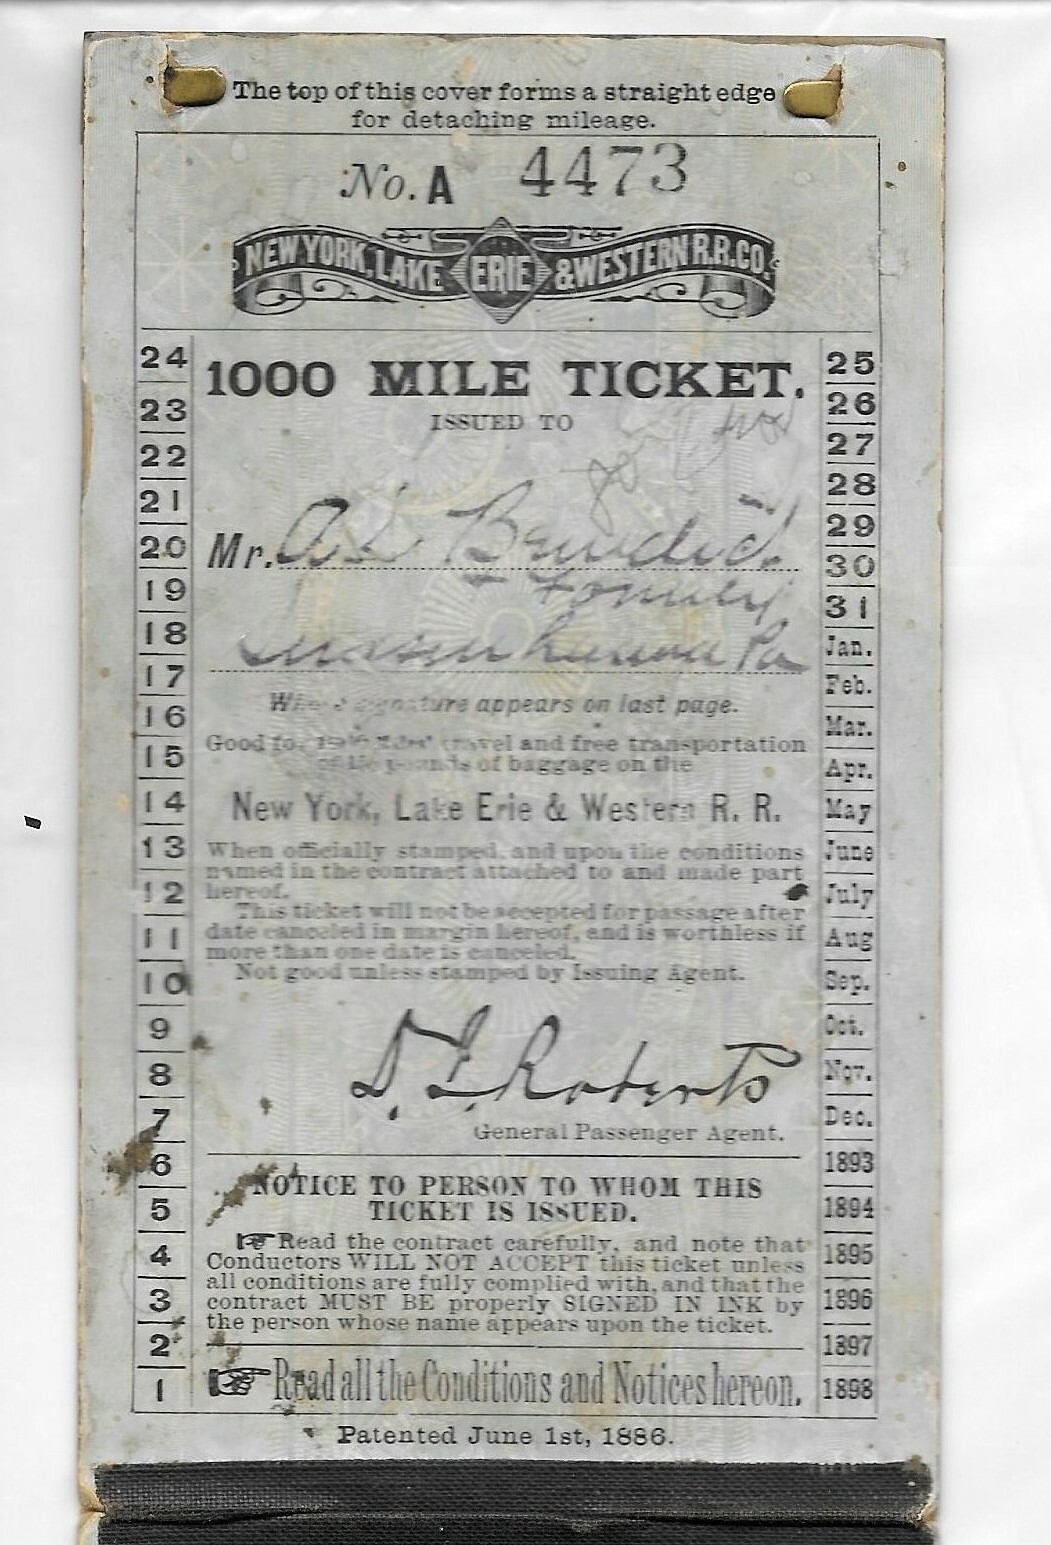 The top of this cover forms a straight edge
for detaching mileage.
No. A 4473
NEW YORK, LAKE ERIE & WESTERN R.R. CO.
1000 MILE TICKET.
ISSUED TO
Mr. A L Benedict
& Family
Susquehanna Pa
Whose signature appears on last page.
Good for 1000 miles' travel and free transportation
of 150 pounds of baggage on the
New York, Lake Erie & Western R. R.
When officially stamped, and upon the conditions
named in the contract attached to and made part
hereof.
This ticket will not be accepted for passage after
date canceled in margin hereof, and is worthless if
more than one date is canceled.
Not good unless stamped by Issuing Agent.
D. I. Roberts
General Passenger Agent.
NOTICE TO PERSON TO WHOM THIS
TICKET IS ISSUED.
Read the contract carefully, and note that
Conductors WILL NOT ACCEPT this ticket unless
all conditions are fully complied with, and that the
contract MUST BE properly SIGNED IN INK by
the person whose name appears upon the ticket.
Read all the Conditions and Notices hereon.
24
23
22
21
20
19
18
17
16
15
14
13
12
11
10
9
8
7
6
5
4
3
2
1
25
26
27
28
29
30
31
Jan.
Feb.
Mar.
Apr.
May
June
July
Aug
Sep.
Oct.
Nov.
Dec.
1893
1894
1895
1896
1897
1898
Patented June 1st, 1886.